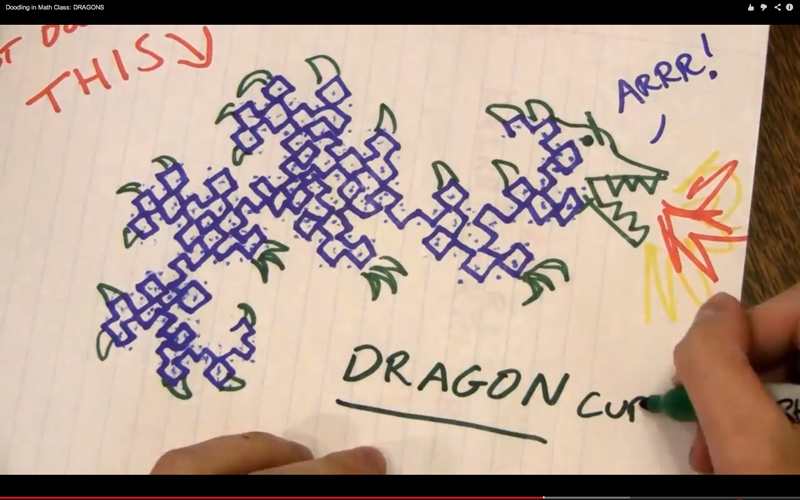 Doodling in Math Class: DRAGONS
THIS
ARRR!
DRAGON cur